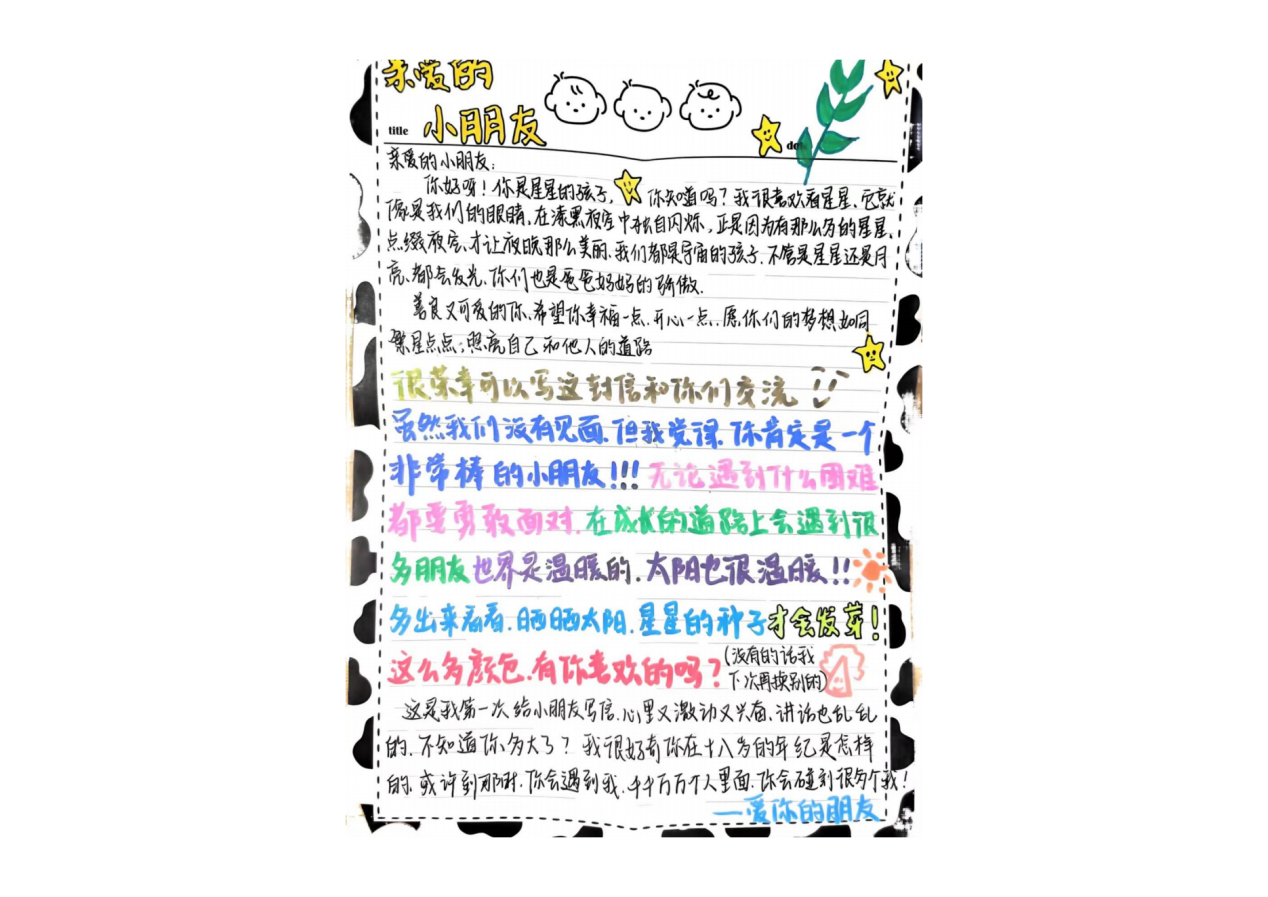 亲爱的
title 小朋友
亲爱的小朋友：
你好呀！你是星星的孩子，你知道吗？我很喜欢看星星、它就
像是我们的眼睛、在漆黑夜空中独自闪烁，正是因为有那么多的星星、
点缀夜空、才让夜晚那么美丽、我们都是宇宙的孩子、不管是星星还是月
亮、都会发光、你们也是爸爸妈妈的骄傲．
善良又可爱的你、希望你幸福一点、开心一点、愿你们的梦想如同
繁星点点；照亮自己和他人的道路
很荣幸可以写这封信和你们交流
虽然我们没有见面、但我觉得、你肯定是一个
非常棒的小朋友！！！无论遇到什么困难
都要勇敢面对、在成长的道路上会遇到很
多朋友也界是温暖的、太阳也很温暖！！
多出来看看、晒晒太阳、星星的种子才会发芽！
这么多颜色、有你喜欢的吗？（没有的话我
下次再换别的）
这是我第一次给小朋友写信、心里又激动又兴奋、讲话也乱乱
的、不知道你多大了？我很好奇你在十八岁的年纪是怎样
的、或许到那时、你会遇到我、千千万万个人里面、你会碰到很多个我！
—爱你的朋友